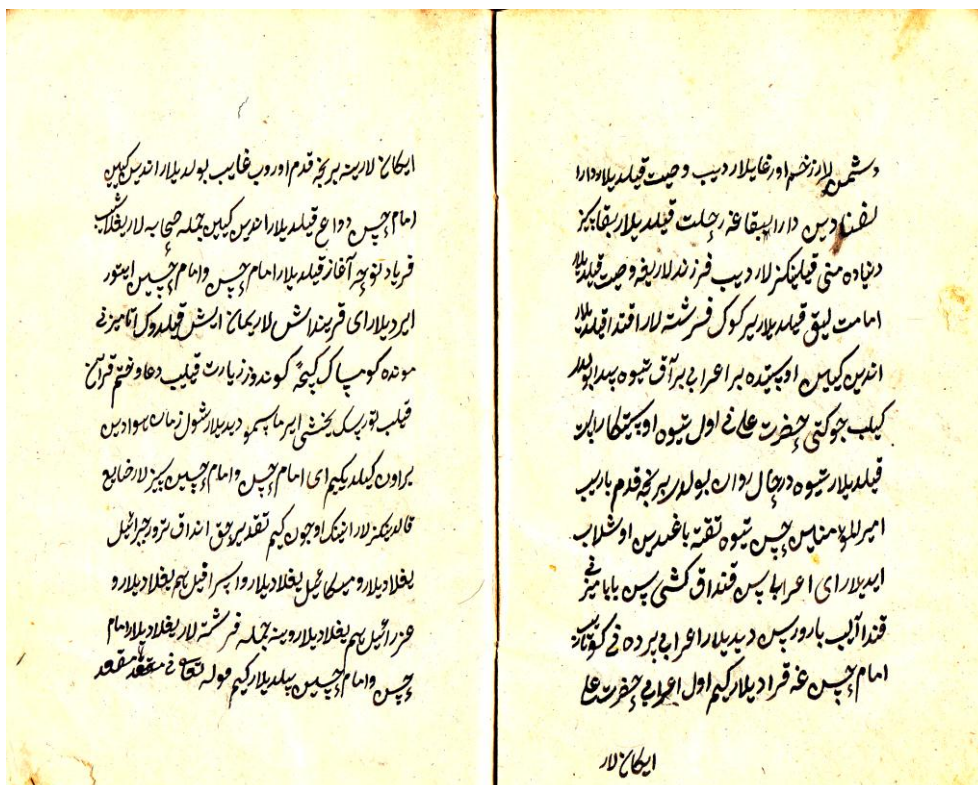 دشمن لار زخم اورغایلار دیب وصیت قیلدیلار دارا
لفنادین دارالبقاغه رحلت قیلدیلار بقا بیز
دنیاده منی قیلینکیز لار دیب فرزند لاریغه وصیت قیلدیلار
امامت لیق قیلدیلار بیر کوک فرشته لار اقتدا قیلدیلار
اندین کیین اوستیده بر اعرابی بر آق تیوه پیدا بولدیلار
کیلب جوکتی حضرت علی نی اول تیوه اوستیکا راست
قیلدیلار تیوه درحال روان بولدی بیر نجه قدم باریب
امیر المؤمنین حسن تیوه نقته باغیدین اوشلاب
ایدیلار ای اعرابی سن قنداق کشی سن بابامیزنی
قندا آلیب بارورسن دیدیلار اعرابی برده نی کوتاریب
امام حسن غه قرادیلار کیم اول اعرابی حضرت علی
ایکان لار
ایکان لار ینه بیر نجه قدم اوروب غایب بولدیلار اندین کیین
امام حسن وداع قیلدیلار اندین کیین جمله صحابه لار یغلاشیب
فریاد نوحه آغاز قیلدیلار امام حسن و امام حسین ایتور
ایردیلار ای قرینداش لار یمان ایش قیلدوک اتامیزنی
مونده کومساک کیجه کوندوز زیارت قیلیب دعا و ختم قرآن
قیلب تورسک یخشی ایرماسمو دیدیلار شول زمان هوادین
بر اون کیلدیکیم ای امام حسن و امام حسین سیز لار ضایع
قالدینکیز لار انینک اوجون کیم تقدیر حق انداق تورور جبرائیل
یغلادیلار و میکائیل یغلادیلار و اسرافیل هم یغلادیلار و
عزرائیل هم یغلادیلار و ینه جمله فرشته لار یغلادیلار امام
حسن و امام حسین بیلدیلار کیم قوله تعالی فی مقعد